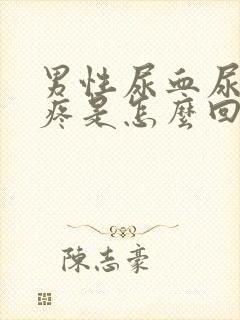 男性尿血尿
疼是怎麼回
陳志豪